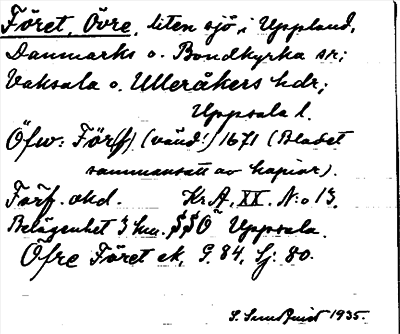 Föret, Övre, liten sjö i Uppland,
Danmarks o. Bondkyrka sr;
Vaksala o. Ulleråkers hdr;
Uppsala l.
Öfw: För(ff) (vänd!) 1671 (Bladet
sammansatt av kopior).
Färff. okd. Kr.A. XX. N:o 13.
Belägenhet 3 km. SSÖ Uppsala.
Öfre Föret ek, G. 84, Lj: 80.
S. Sundquist 1935.